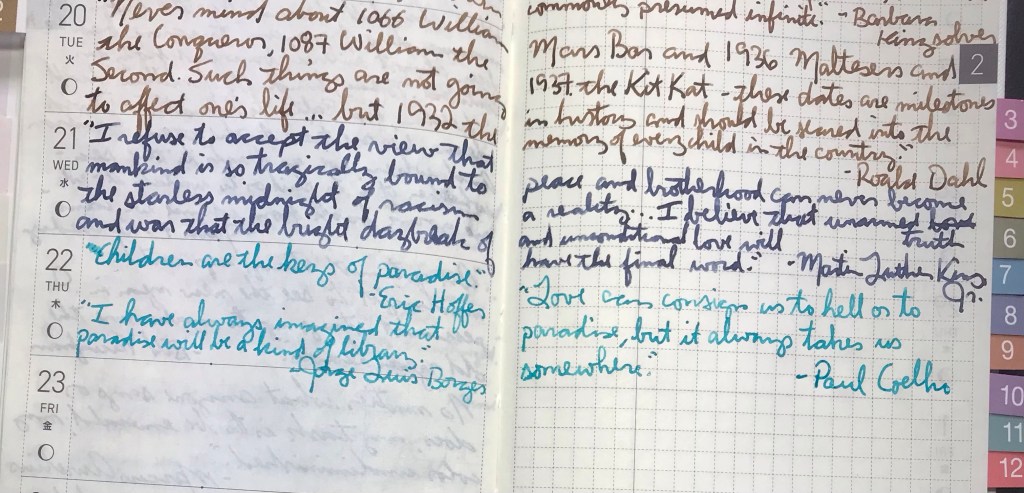 20
TUE
火
"Never mind about 1066 William
the Conqueror, 1087 William the
Second. Such things are not going
to affect one's life... but 1932 the
21
WED
水
"I refuse to accept the view that
mankind is so tragically bound to
the starless midnight of racism
and war that the bright daybreak of
22
THU
木
"Children are the keys of paradise."
-Eric Hoffer
"I have always imagined that
paradise will be a kind of library."
-Jorge Luis Borges
23
FRI
金
commonly presumed infinite." -Barbara
Kingsolver
Mars Bar and 1936 Maltesers and
1937 the Kit Kat - these dates are milestones
in history and should be seared into the
memory of every child in the country."
-Roald Dahl
peace and brotherhood can never become
a reality... I believe that unarmed
truth
and unconditional love will
have the final word." -Martin Luther King
Jr.
"Love can consign us to hell or to
paradise, but it always takes us
somewhere."
-Paul Coelho
2
3
4
5
6
7
8
9
10
11
12